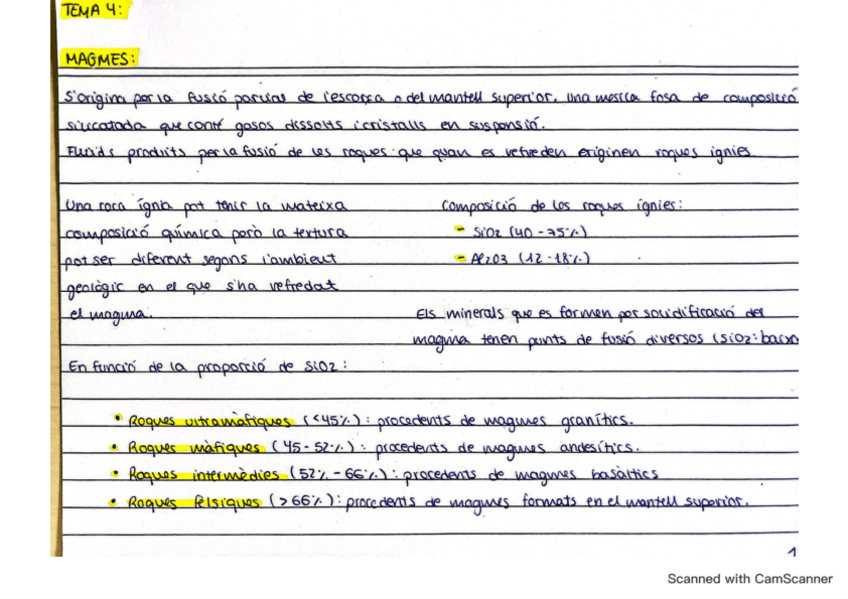 TEMA 4:
MAGMES:
S'origina per la fusió parcial de l'escorça o del mantell superior. Una mescla fosa de composició
silicatada que conté gasos dissolts i cristalls en suspensió.
Fluids produits per la fusió de les roques que quan es refreden originen roques ígnies
Una roca ígnia pot tenir la mateixa
composició química però la textura
pot ser diferent segons l'ambient
geològic en el que s'ha refredat
el magma.
Composició de les roques ígnies:
- SiO2 (40-75%)
- Al2O3 (12-18%)
Els minerals que es formen per solidificació del
magma tenen punts de fusió diversos (SiO2: baixo
En funció de la proporció de SiO2:
• Roques ultramàfiques (<45%): procedents de magmes granítics.
• Roques màfiques (45-52%): procedents de magmes andesítics.
• Roques intermèdies (52%-66%): procedents de magmes basàltics
• Roques felsiques (>66%): procedents de magmes formats en el mantell superior.
1
Scanned with CamScanner